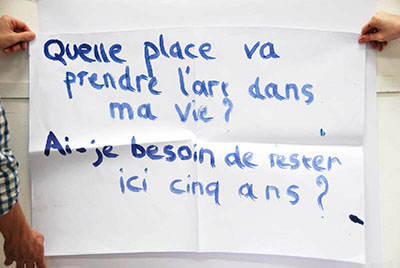 Quelle place va
prendre l'art dans
ma vie ?
Ai-je besoin de rester
ici cinq ans ?